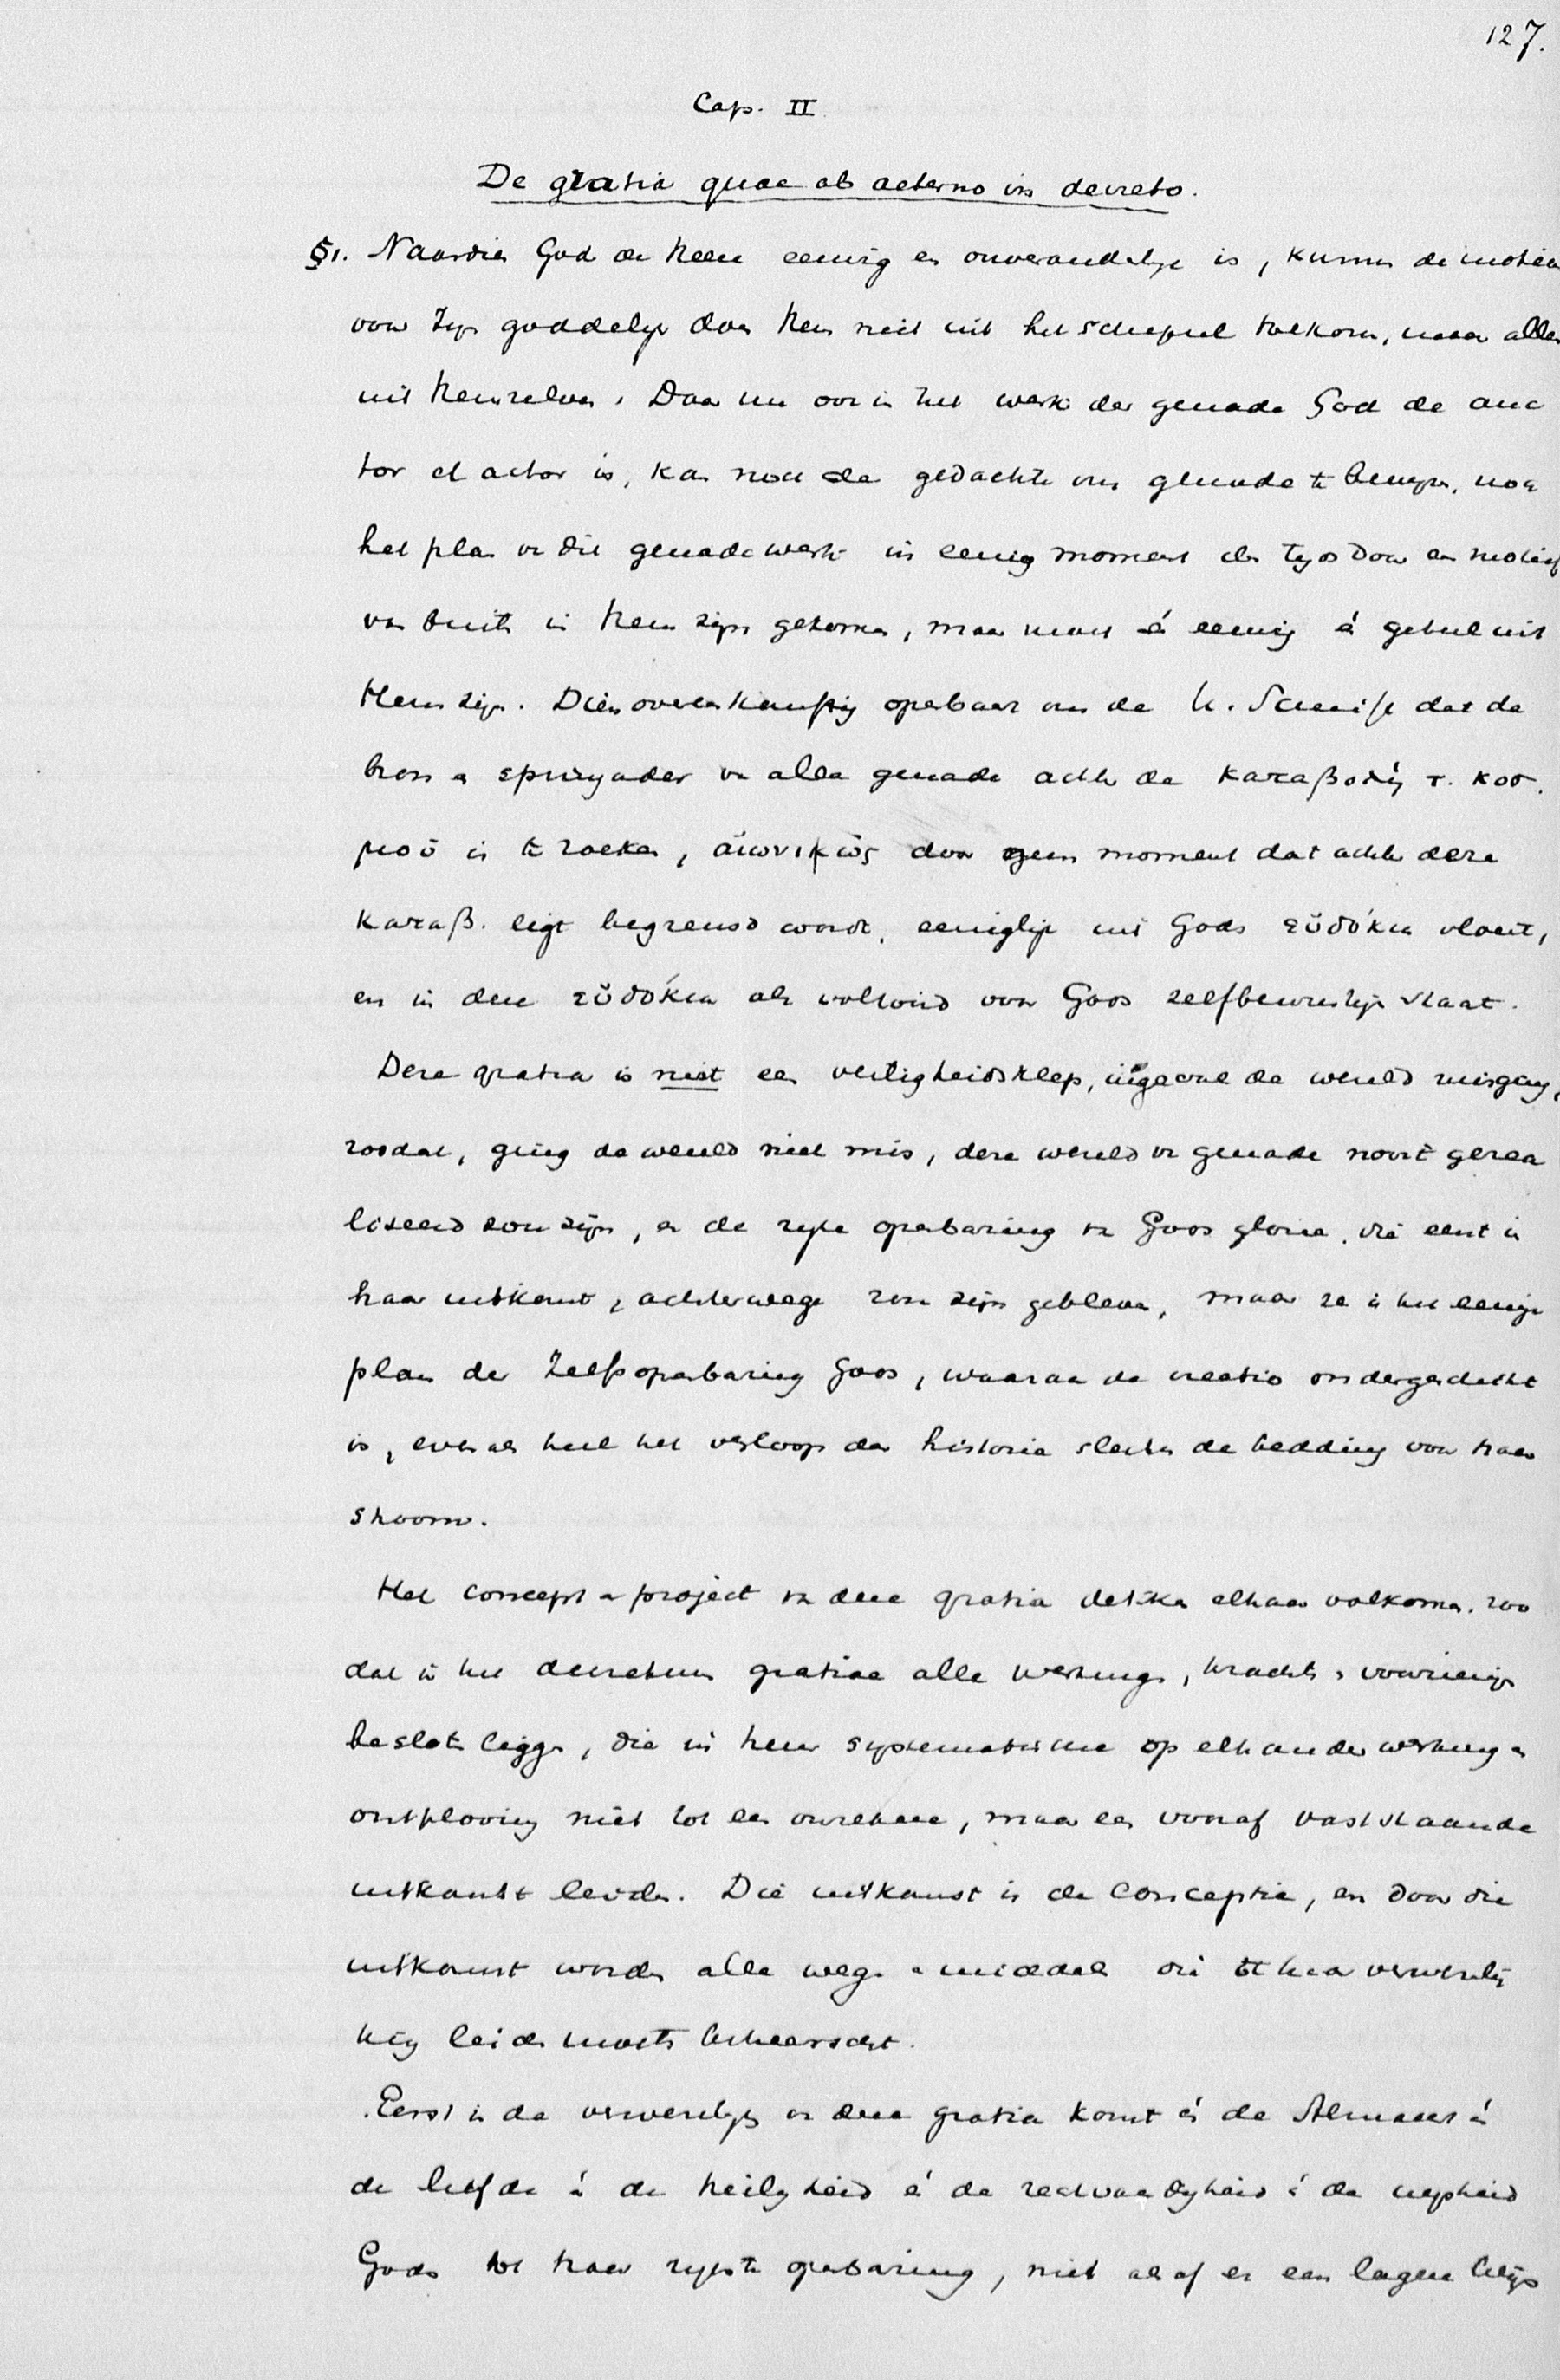 127.
Cap. II
De gratia quae ab aeterno in decreto.
§1. Naardien God de Heere eeuwig en onveranderlijk is, kunnen de motieven
voor Zijn goddelijk doen Hem niet uit het schepsel toekomen, maar alleen
uit Hemzelven. Daar nu ook in het werk der genade God de auc
tor et actor is, kan noch de gedachte om genade te bewijzen, noch
het plan v. dit genadewerk in eenig moment des tijds door een motief
van buiten in Hem zijn gekomen, maar moet én eeuwig én geheel uit
Hem zijn. Dienovereenkomstig openbaart ons de H. Schrift dat de
bron en springader v. alle genade achter de καταβολὴ τ. κοσ.
μοῦ is te zoeken, αἰωνικῶς door geen moment dat achter deze
καταβ. ligt begrensd wordt, eeniglijk uit Gods εὐδοκία vloeit,
en in deze εὐδοκία als voltooid voor Gods zelfbewustzijn staat.
Deze gratia is niet een veiligheidsklep, ingeval de wereld misging,
zoodat, ging de wereld niet mis, deze wereld v. genade nooit gerea
liseerd zou zijn, en de rijke openbaring v. Gods glorie, die eerst in
haar uitkomt, achterwege zou zijn gebleven, maar ze is het eenige
plan der Zelfopenbaring Gods, waaraan de creatio ondergeschikt
is, even als heel het verloop der historie slechts de bedding voor haar
stroom.
Het concept en project v. deze gratia dekken elkaar volkomen, zoo
dat in het decretum gratiae alle werkingen, krachten en voorzieningen
besloten liggen, die in heur systematische op elkander werking en
ontplooiing niet tot een onzekere, maar een vooraf vaststaande
uitkomst leiden. Die uitkomst is de conceptie, en door die
uitkomst worden alle wegen en middelen die tot haar verwezenlij
king leiden moeten beheerscht.
Eerst in de verwezenlijking v. deze gratia komt én de Almacht én
de liefde én de heiligheid én de rechtvaardigheid én de wijsheid
Gods tot haar rijkste openbaring, niet als of er een lagere